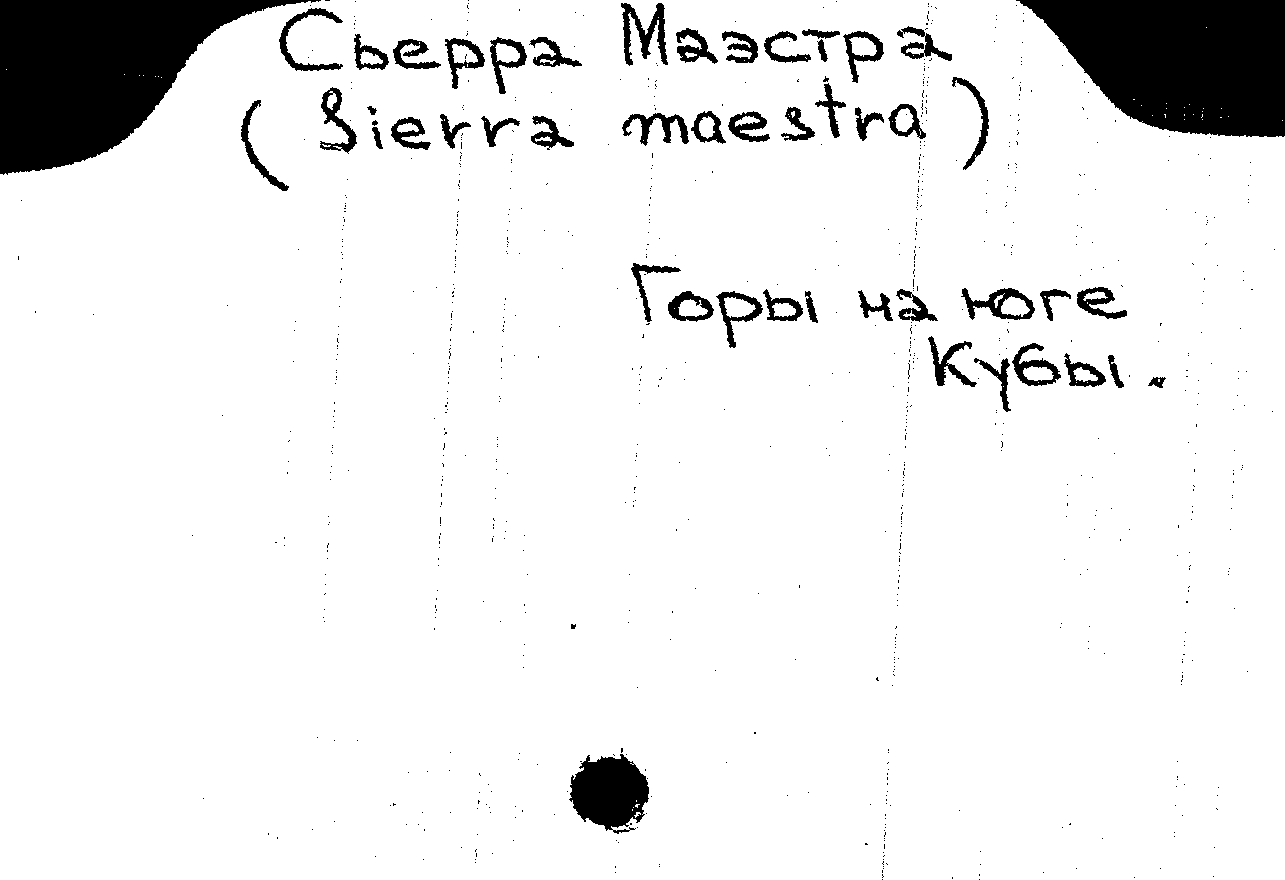 Сьерра Маэстра
(Sierra maestra)
Горы на юге
Кубы.